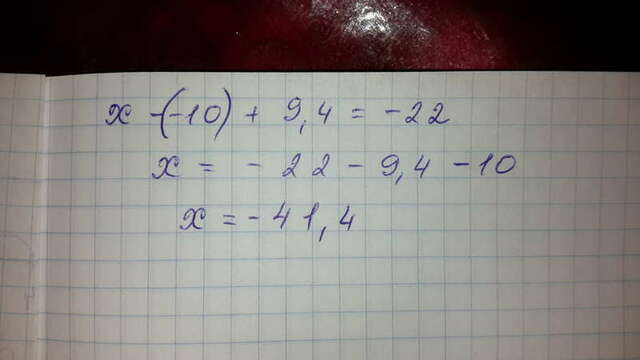 x -(-10) + 9,4 = -22
x = - 22 - 9,4 - 10
x = - 41,4